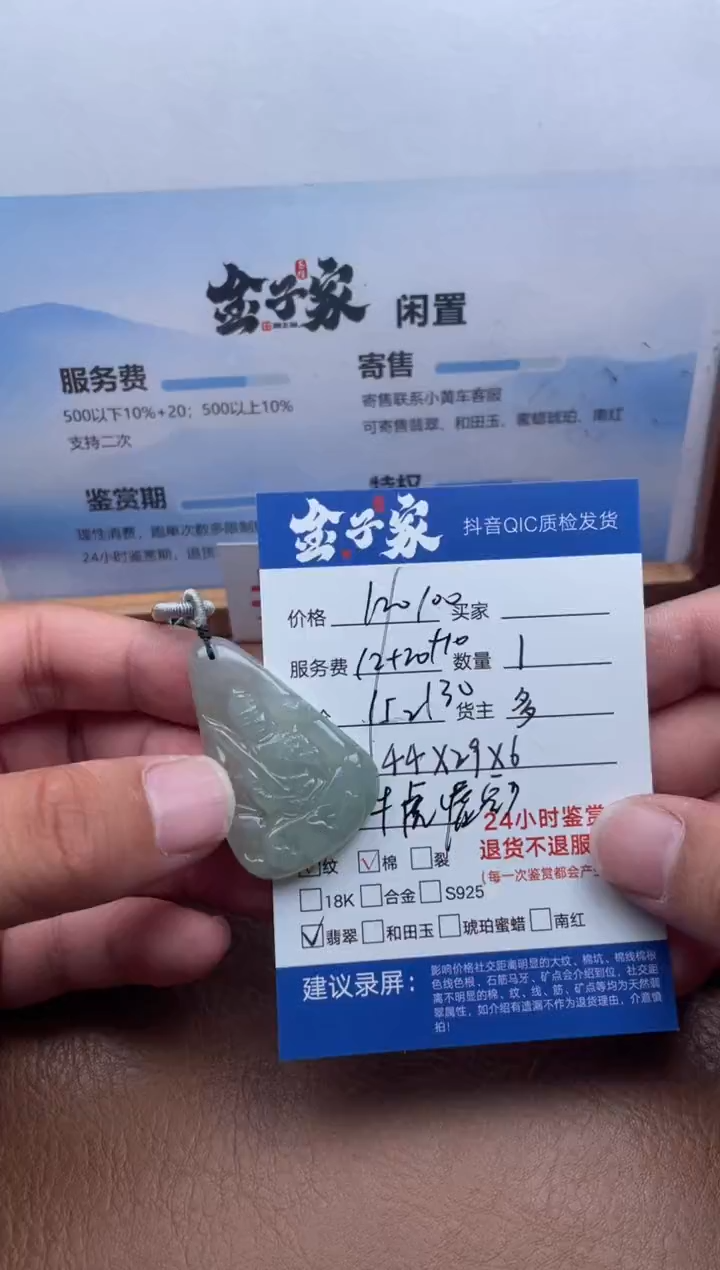 金子家 闲置
服务费
500以下10%+20；500以上10%
支持二次
寄售
寄售联系小黄车客服
可寄售翡翠、和田玉、蜜蜡琥珀、南红
鉴赏期
特权
理性消费，跑单次数多限制
24小时鉴赏期，退货
金子家 抖音QIC质检发货
价格 120 100 买家
服务费 12+20+10 数量 1
152 130 货主 多
44X29X6
牛虎
24小时鉴赏
退货不退服
(每一次鉴赏都会产
纹 棉 裂
18K 合金 S925
翡翠 和田玉 琥珀蜜蜡 南红
建议录屏：
影响价格社交距离明显的大纹、棉坑、棉线棉根
色线色根、石筋马牙、矿点会介绍到位，社交距
离不明显的棉、纹、线、筋、矿点等均为天然翡
翠属性，如介绍有遗漏不作为退货理由，介意慎
拍！